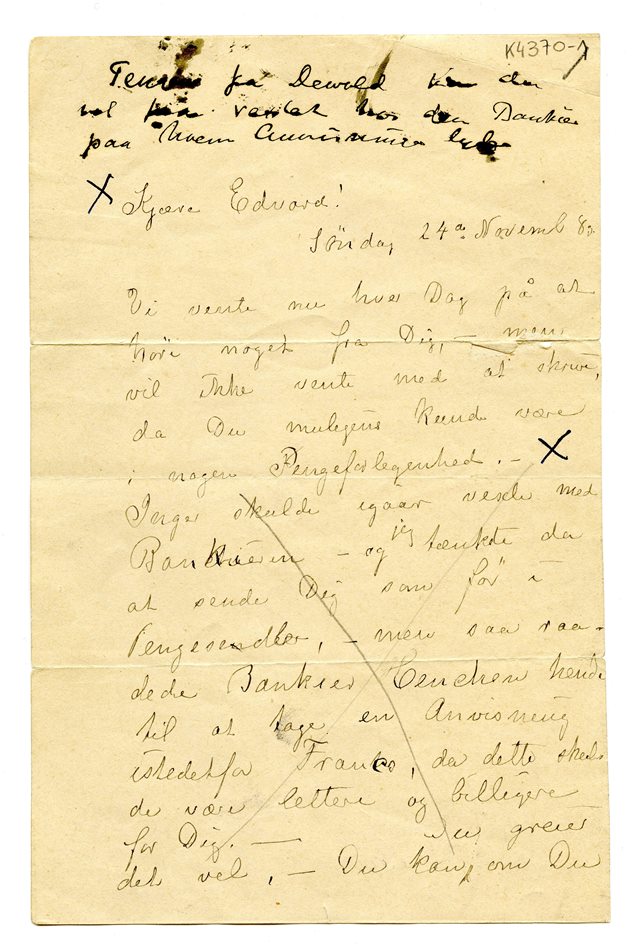 K4370-1
paa Dewald kan du
vel faa vexlet hos den Bankier
paa hvem Anvisningen
X Kjære Edvard!
Söndag 24de Novemb 8
Vi vente nu hver Dag på at
höre noget fra Dig, – men
vil ikke vente med at skrive,
da Du muligens kunde være
i nogen Pengeforlegenhed. – X
Inger skulde igaar vexle med
Bankieren – og jeg tænkte da
at sende Dig som før i
Pengesedler, – men saa raa-
dede Bankier Henchen hende
til at tage en Anvisning
istedetfor Francs, da dette skul-
de være lettere og billigere
for Dig. – Du greier
det vel, – Du kan, om Du